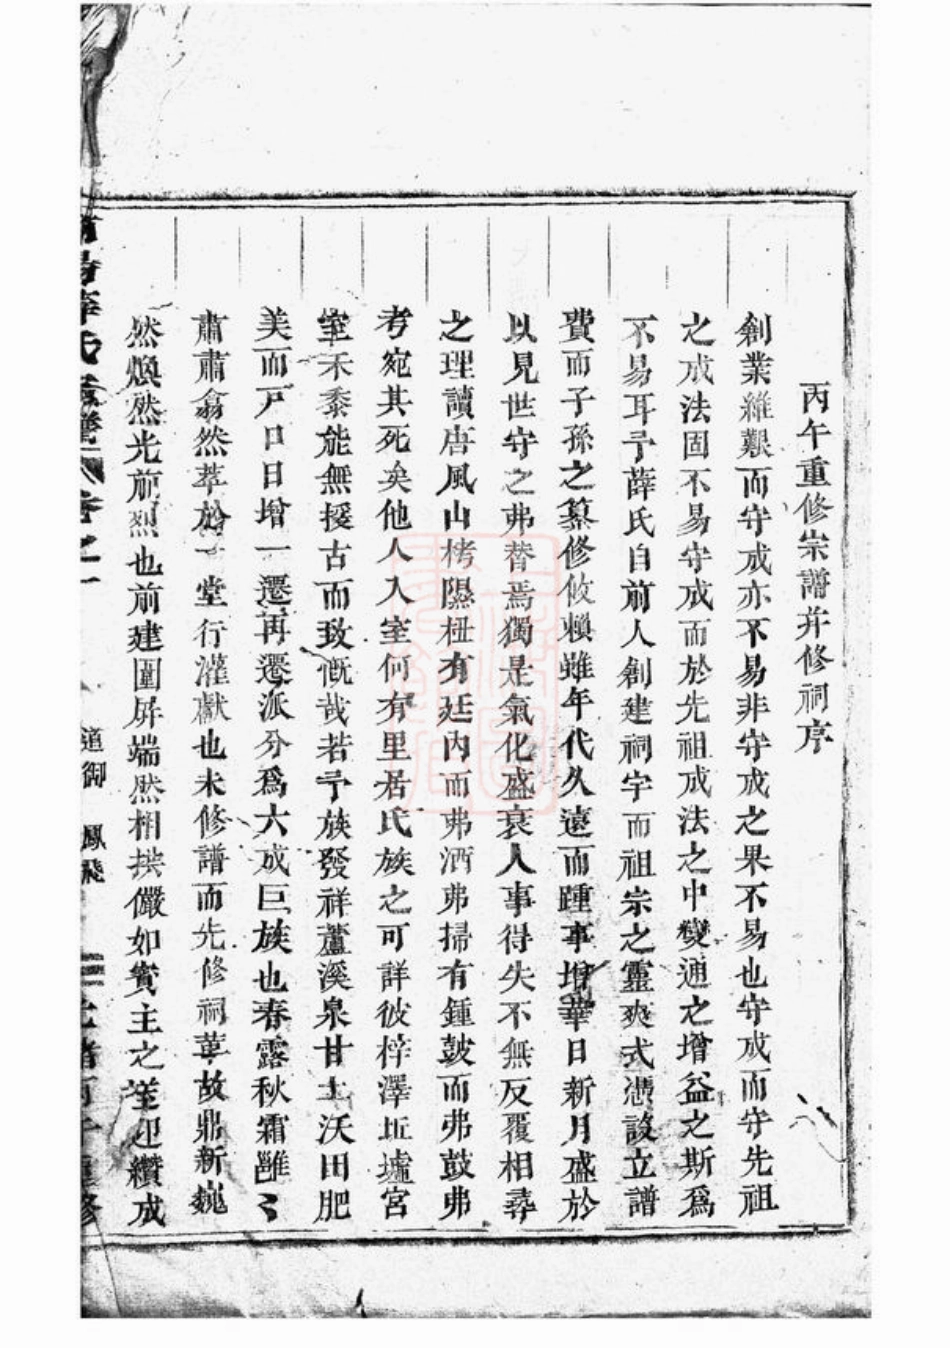 丙午重修宗譜并修祠序
創業維艱而守成亦不易非守成之果不易也守成而守先祖
之成法固不易守成而於先祖成法之中變通之增益之斯為
不易耳予薛氏自前人創建祠宇而祖宗之靈爽式憑設立譜
費而子孫之纂修攸賴雖年代久遠而踵事增華日新月盛於
以見世守之弗替焉獨是氣化盛衰人事得失不無反覆相尋
之理讀唐風山栲隰杻有廷內而弗洒弗掃有鍾鼓而弗鼓弗
考宛其死矣他人入室何有里居氏族之可詳彼梓澤坵墟宮
室禾黍能無援古而致慨哉若予族發祥蘆溪泉甘土沃田肥
美而戶口日增一遷再遷派分為六成巨族也春露秋霜雝〻
肅肅翕然萃於一堂行灌獻也未修譜而先修祠葺故鼎新巍
然煥然光前烈也前建圍屏端然相拱儼如賓主之迎纘成
薛氏 卷之一
道御 鳳飛
重修